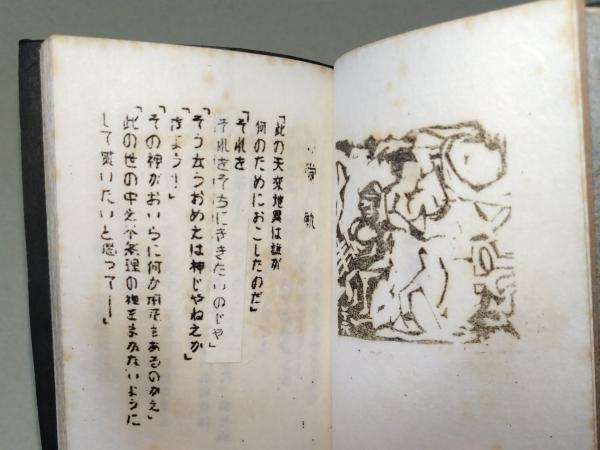 常軌
「此の天変地異は誰が
何のためにおこしたのだ」
「それを
それをそちにききたいのじや」
「そう云うおめえは神じやねえか」
「さよう!」
「その神がおいらに何か用でもあるのかえ」
「此の世の中之不条理の種をまかないように
して貰いたいと思って―」